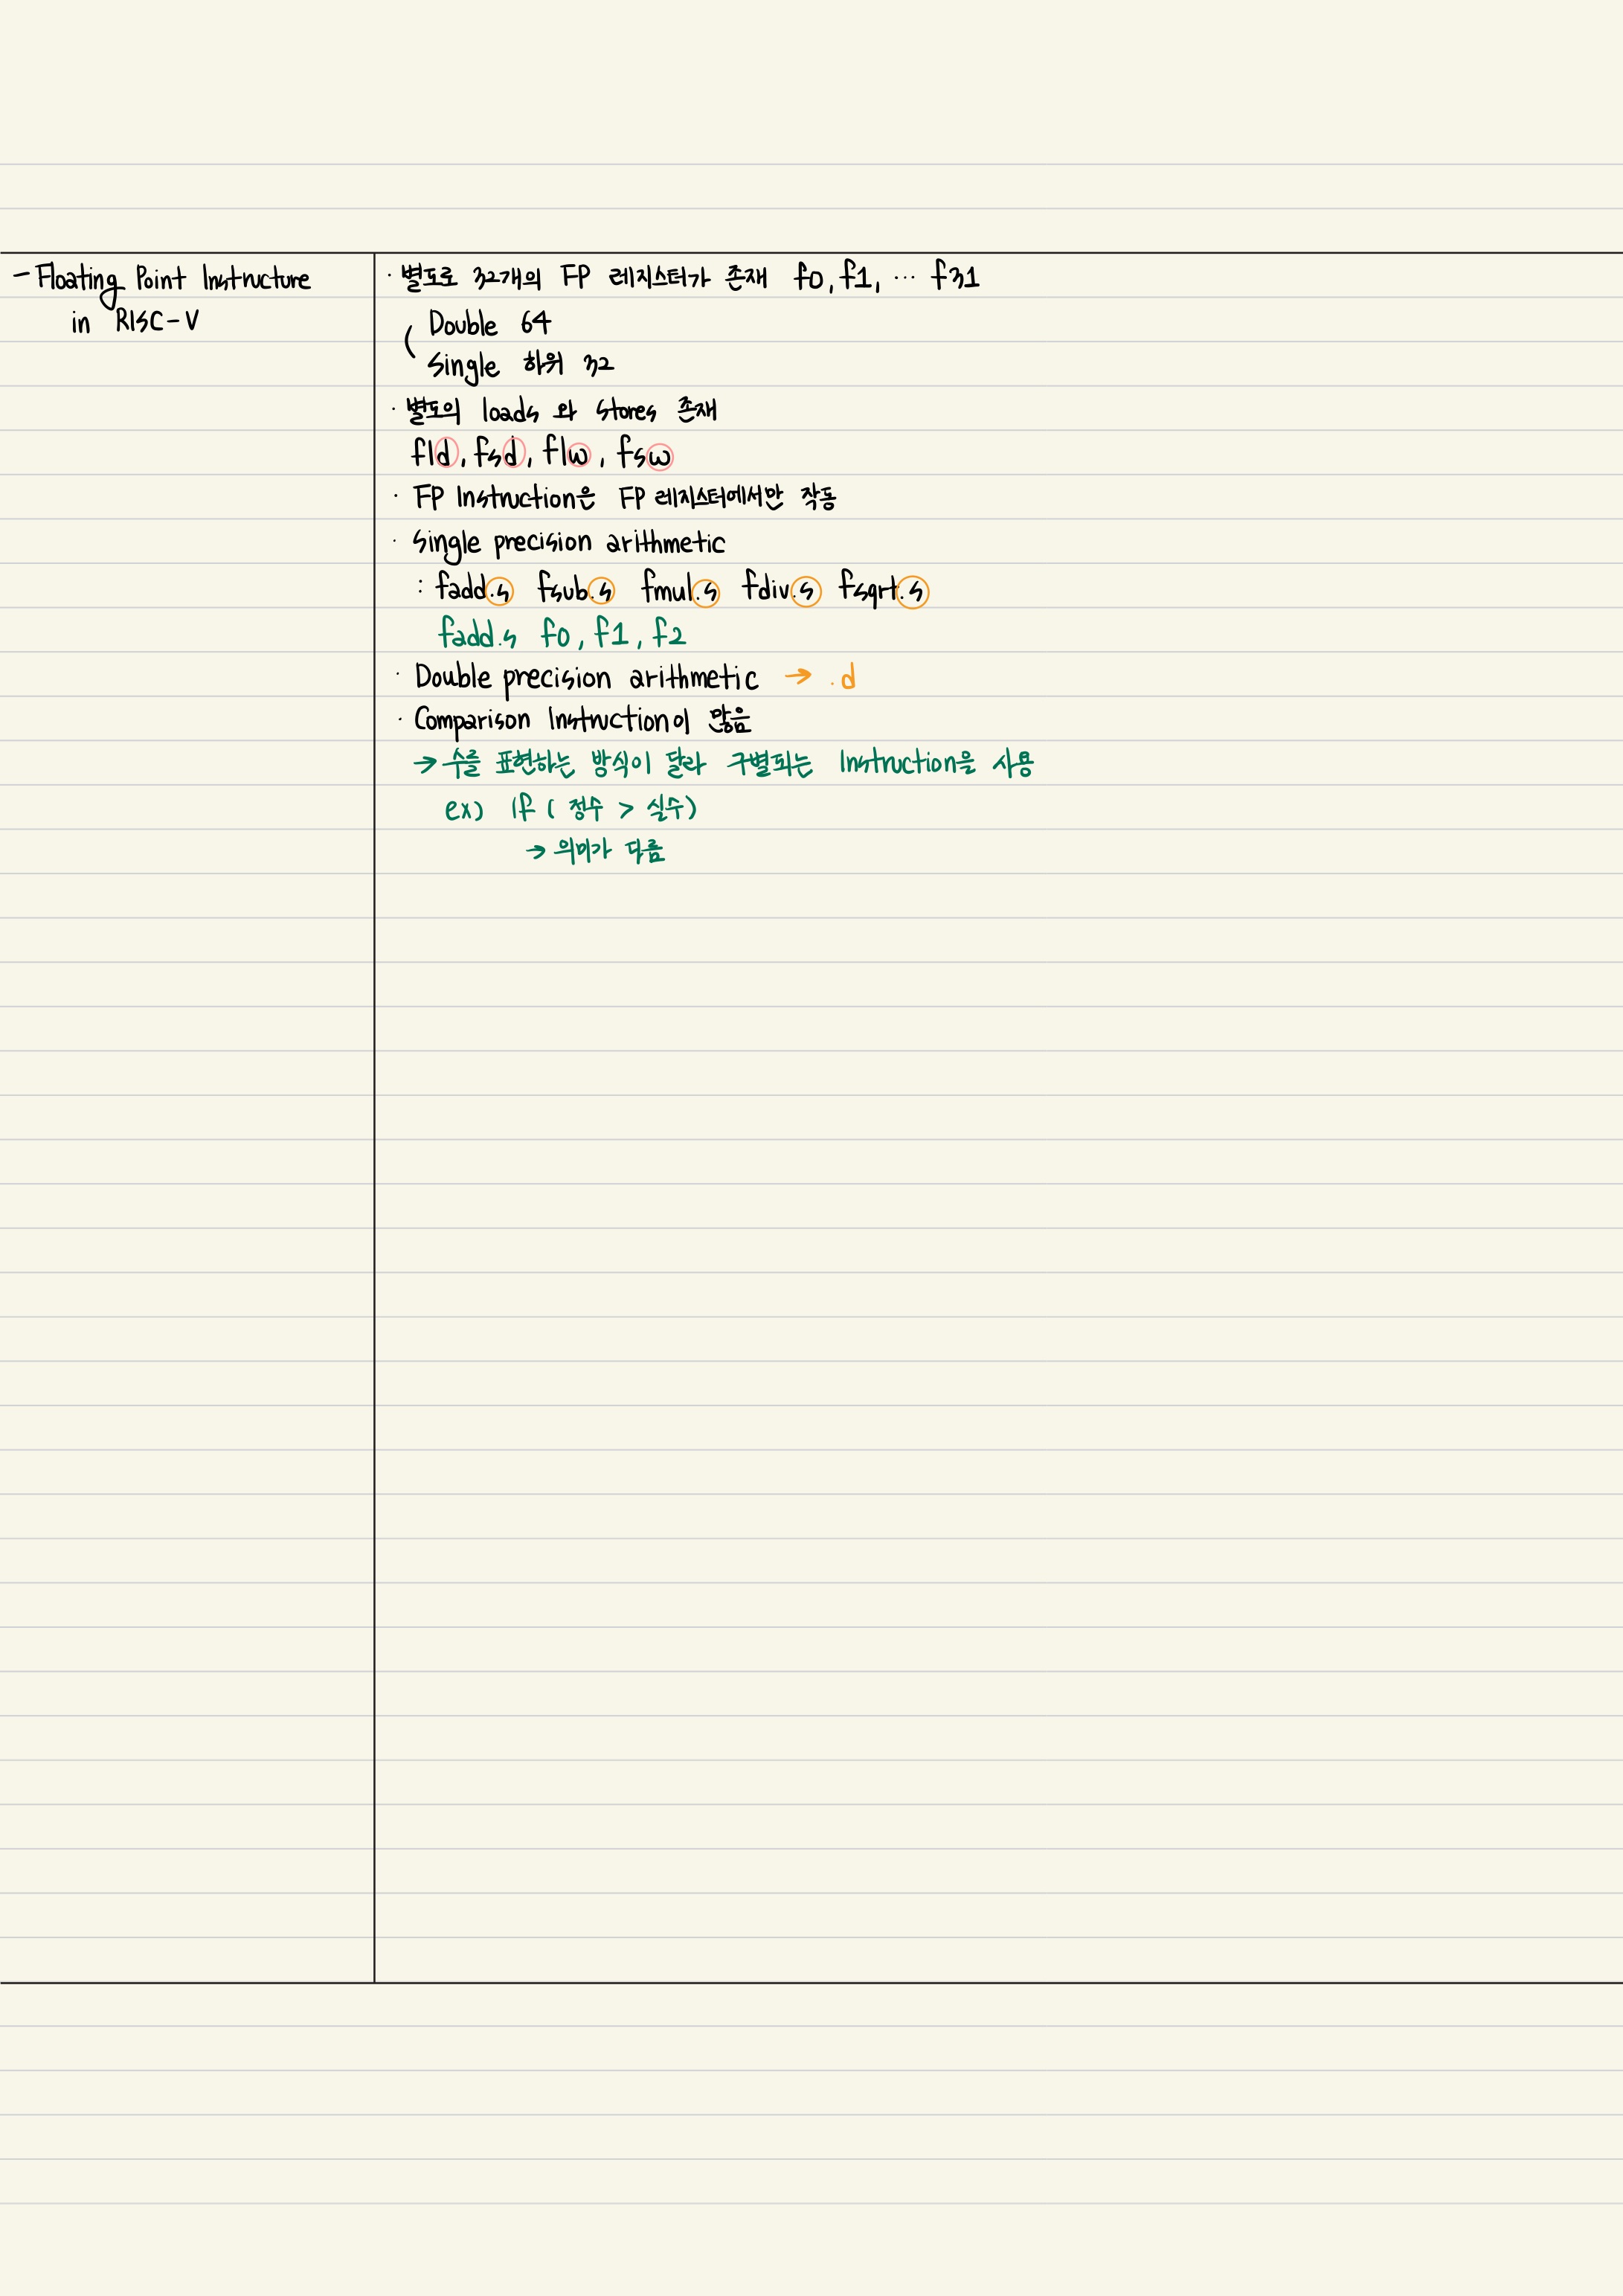 - Floating Point Instructure
in RISC-V
· 별도로 32개의 FP 레지스터가 존재 f0, f1, ··· f31
( Double 64
Single 하위 32
· 별도의 loads 와 stores 존재
fld, fsd, flw, fsw
· FP Instruction은 FP 레지스터에서만 작동
· Single precision arithmetic
: fadd.s fsub.s fmul.s fdiv.s fsqrt.s
fadd.s f0, f1, f2
· Double precision arithmetic → .d
· Comparison Instruction이 많음
→ 수를 표현하는 방식이 달라 구별되는 Instruction을 사용
ex) if ( 정수 > 실수)
→ 의미가 다름